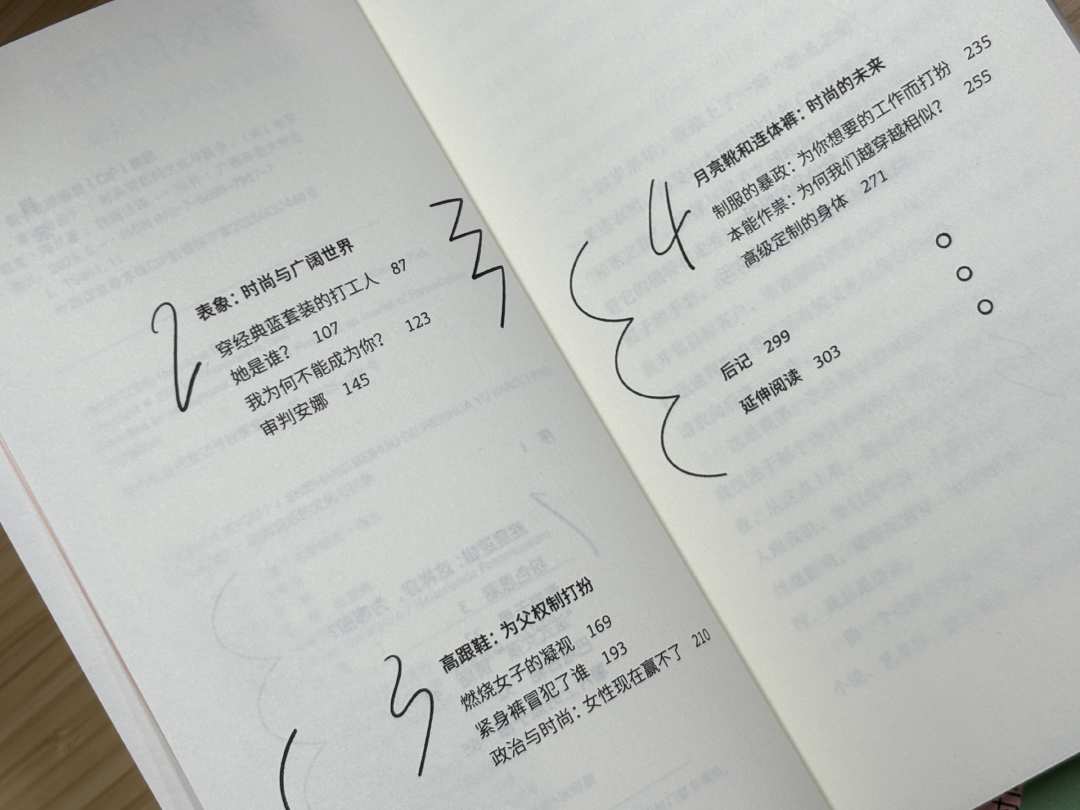 2
表象：时尚与广阔世界
穿经典蓝套装的打工人 87
她是谁？ 107
我为何不能成为你？ 123
审判安娜 145
3
高跟鞋：为父权制打扮
燃烧女子的凝视 169
紧身裤冒犯了谁 193
政治与时尚：女性现在赢不了 210
4
月亮靴和连体裤：时尚的未来
制服的暴政：为你想要的工作而打扮 235
本能作祟：为何我们越穿越相似？ 255
高级定制的身体 271
后记 299
延伸阅读 303